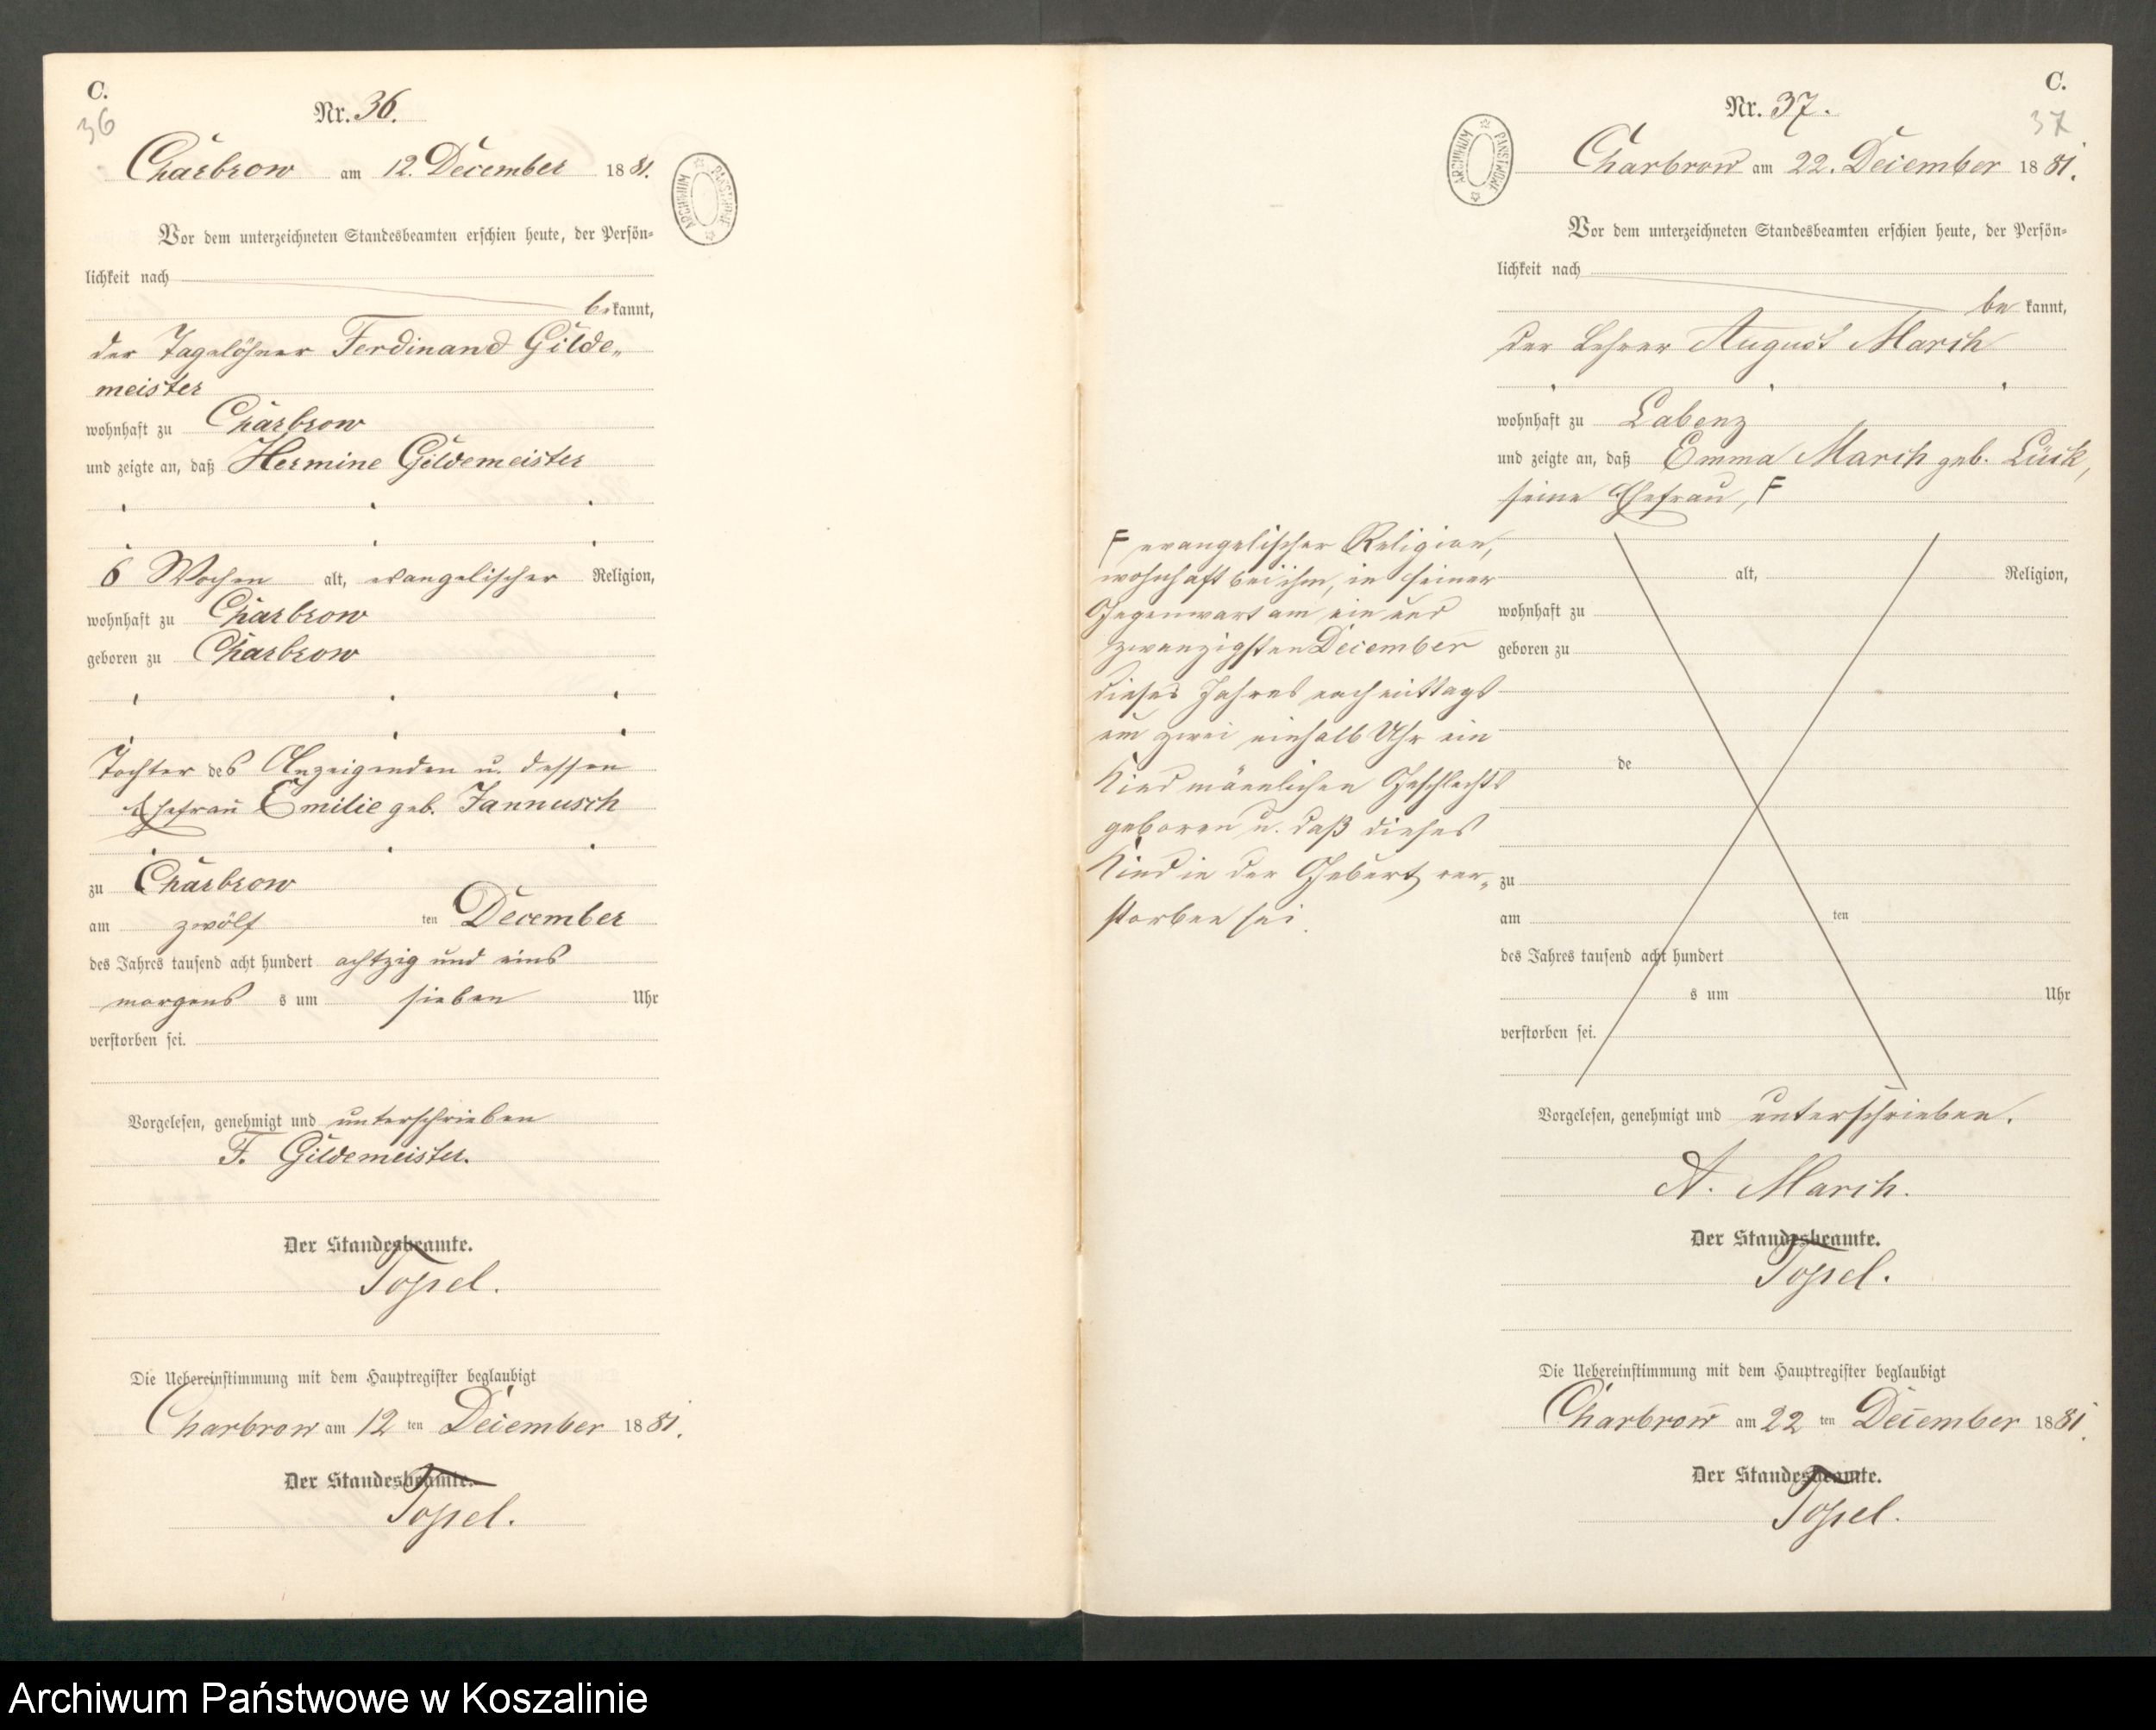 C.
36
Nr. 36.
Charbrow am 12. December 1881.
ARCHIWUM PAŃSTWOWE
Vor dem unterzeichneten Standesbeamten erschien heute, der Persön-
lichkeit nach
bekannt,
der Tagelöhner Ferdinand Gilde-
meister
wohnhaft zu Charbrow
und zeigte an, daß Hermine Gildemeister
6 Wochen alt, evangelischer Religion,
wohnhaft zu Charbrow
geboren zu Charbrow
Tochter des Anzeigenden u. dessen
Ehefrau Emilie geb. Jannusch
zu Charbrow
am zwölf ten December
des Jahres tausend acht hundert achtzig und eins
morgens s um sieben Uhr
verstorben sei.
Vorgelesen, genehmigt und unterschrieben
F. Gildemeister.
Der Standesbeamte.
Topel.
Die Uebereinstimmung mit dem Hauptregister beglaubigt
Charbrow am 12 ten December 1881.
Der Standesbeamte.
Topel.
C.
37
Nr. 37.
ARCHIWUM PAŃSTWOWE
Charbrow am 22. December 1881.
Vor dem unterzeichneten Standesbeamten erschien heute, der Persön-
lichkeit nach
be kannt,
der Lehrer August March
wohnhaft zu Labenz
und zeigte an, daß Emma March geb. Lück,
seine Ehefrau, F
F evangelischer Religion,
wohnhaft bei ihm, in seiner
Gegenwart am ein und
zwanzigsten December
dieses Jahres nachmittags
um zwei einhalb Uhr ein
Kind männlichen Geschlechts
geboren u. daß dieses
Kind in der Geburt ver-
storben sei.
alt, Religion,
wohnhaft zu
geboren zu
de
zu
am ten
des Jahres tausend acht hundert
s um Uhr
verstorben sei.
Vorgelesen, genehmigt und unterschrieben.
A. March.
Der Standesbeamte.
Topel.
Die Uebereinstimmung mit dem Hauptregister beglaubigt
Charbrow am 22 ten December 1881.
Der Standesbeamte.
Topel.
Archiwum Państwowe w Koszalinie